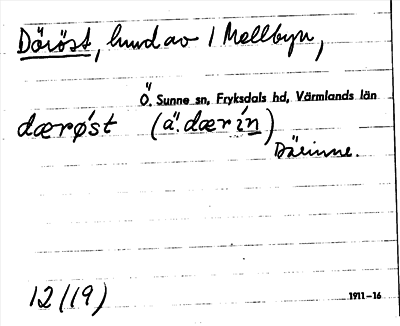 Döröst, hmd av 1 Mellbyn,
Ö. Sunne sn, Fryksdals hd, Värmlands län
dærǿst (ä. dærin)
Därinne.
12(19)
1911–16